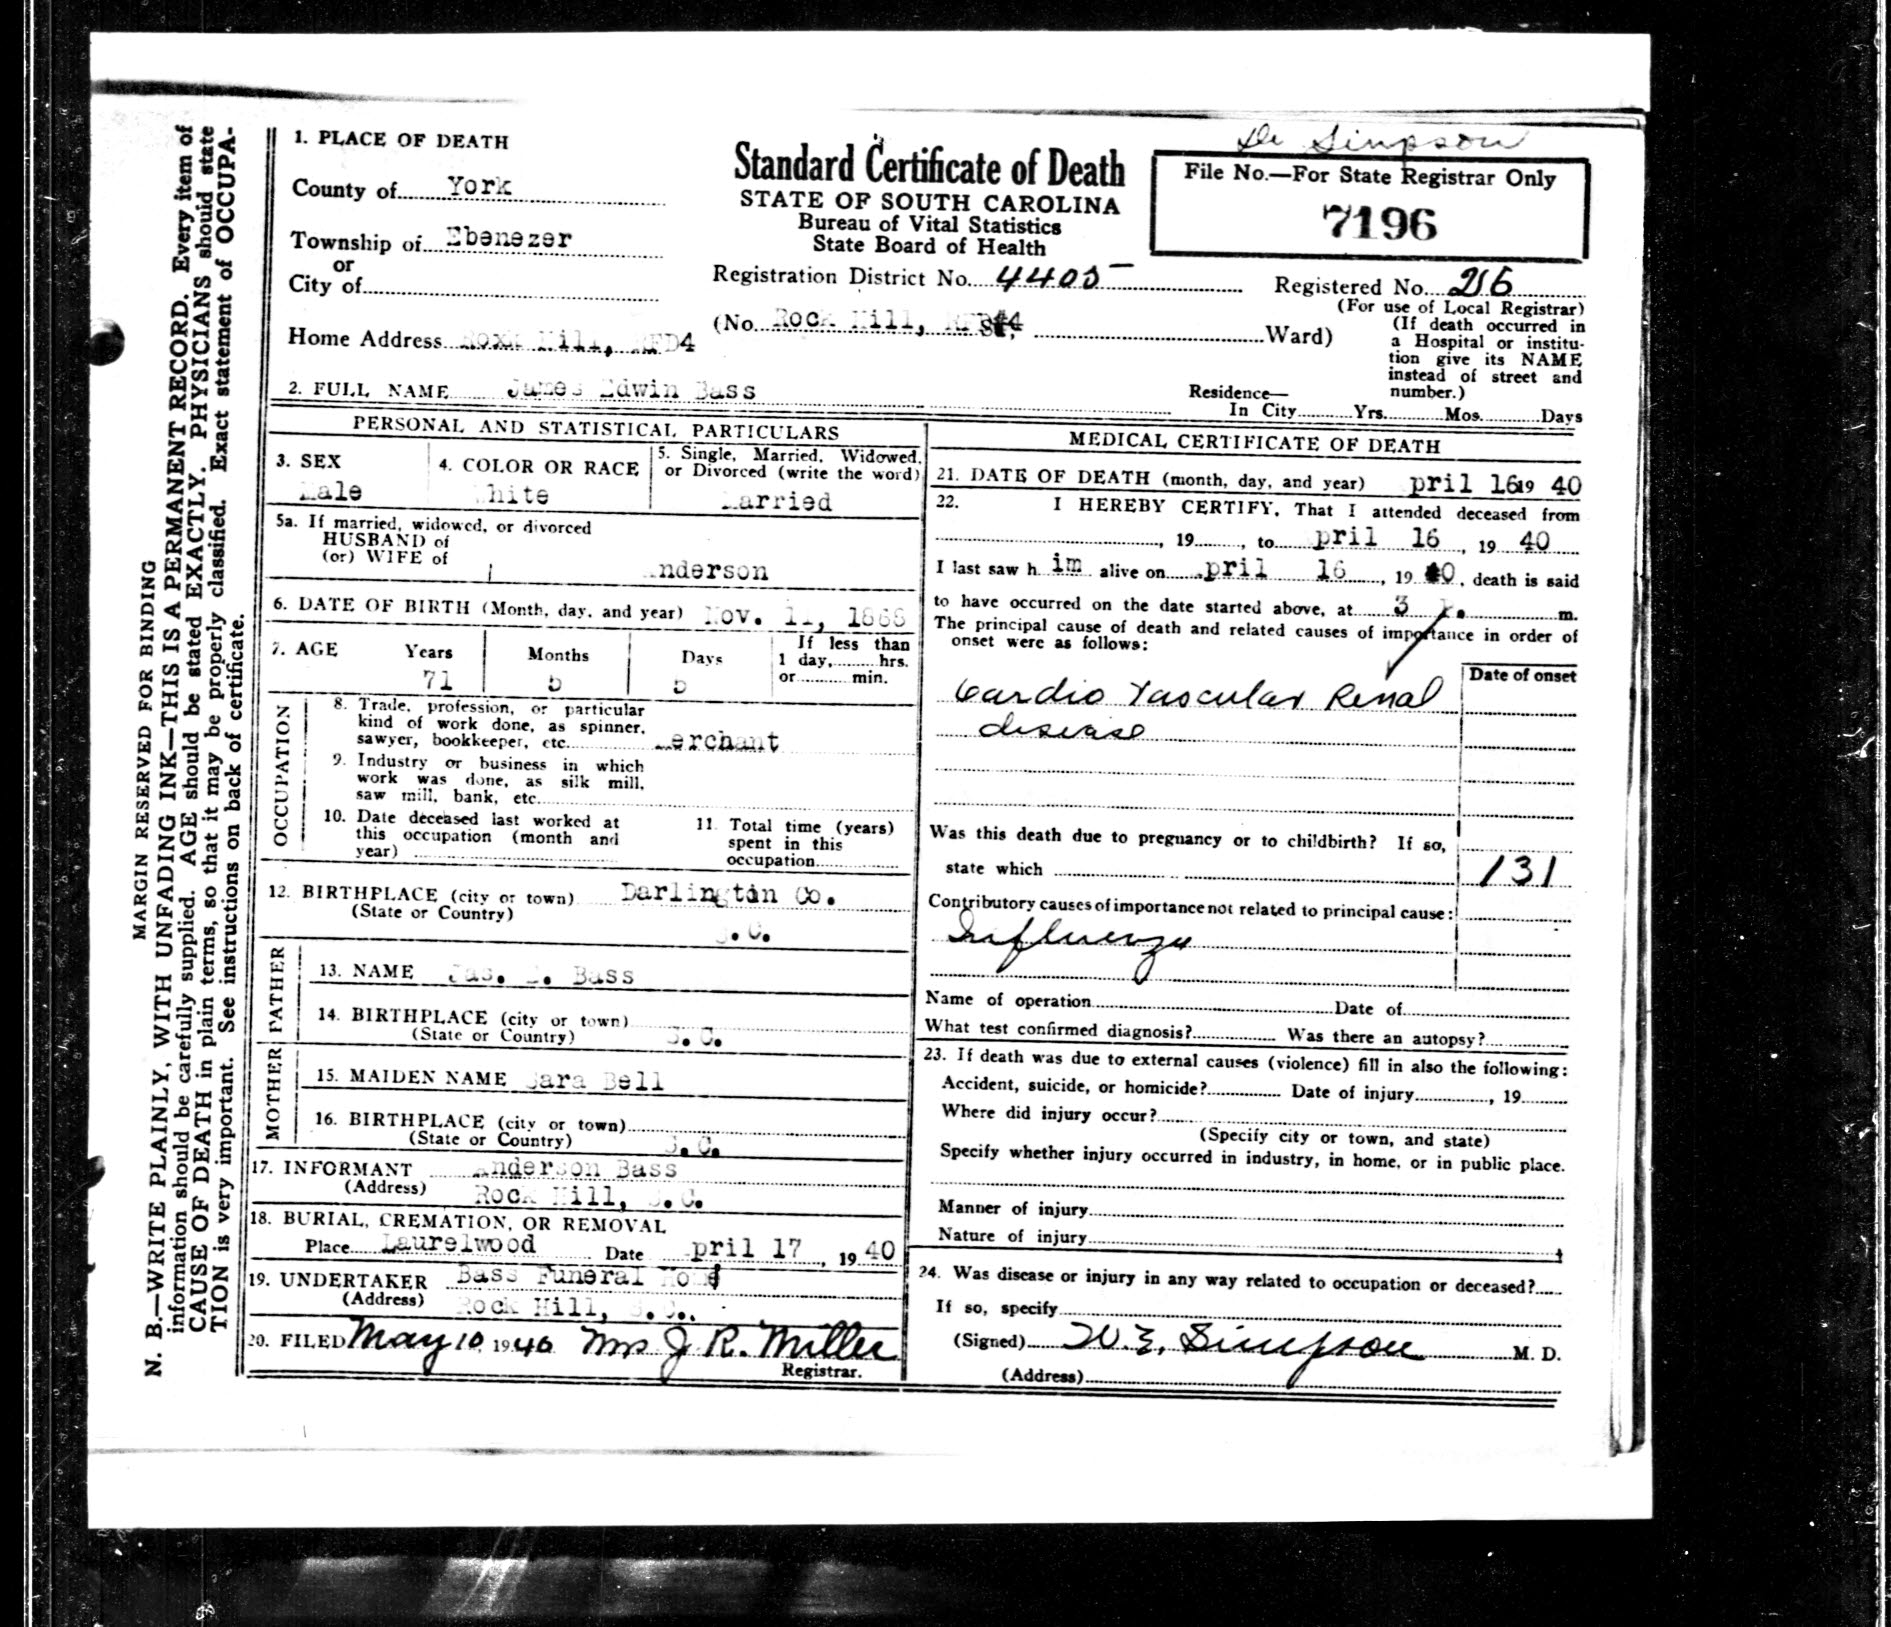 MARGIN RESERVED FOR BINDING
N. B.—WRITE PLAINLY, WITH UNFADING INK—THIS IS A PERMANENT RECORD. Every item of
information should be carefully supplied. AGE should be stated EXACTLY. PHYSICIANS should state
CAUSE OF DEATH in plain terms, so that it may be properly classified. Exact statement of OCCUPA-
TION is very important. See instructions on back of certificate.
Dr Simpson
1. PLACE OF DEATH
County of York
Township of Ebenezer
or
City of
Home Address Hill, RFD4
Standard Certificate of Death
STATE OF SOUTH CAROLINA
Bureau of Vital Statistics
State Board of Health
Registration District No. 4405
(No. Rock Hill, St., Ward)
File No.—For State Registrar Only
7196
Registered No. 216
(For use of Local Registrar)
(If death occurred in
a Hospital or institu-
tion give its NAME
instead of street and
number.)
2. FULL NAME James Edwin Bass
Residence—
In City Yrs. Mos. Days
PERSONAL AND STATISTICAL PARTICULARS
3. SEX
Male
4. COLOR OR RACE
White
5. Single, Married, Widowed,
or Divorced (write the word)
Married
5a. If married, widowed, or divorced
HUSBAND of
(or) WIFE of
Anderson
6. DATE OF BIRTH (Month, day, and year) Nov. 11, 1868
7. AGE Years Months Days
71 5 5
If less than
1 day, hrs.
or min.
OCCUPATION
8. Trade, profession, or particular
kind of work done, as spinner,
sawyer, bookkeeper, etc. Merchant
9. Industry or business in which
work was done, as silk mill,
saw mill, bank, etc.
10. Date deceased last worked at
this occupation (month and
year)
11. Total time (years)
spent in this
occupation
12. BIRTHPLACE (city or town) Darlington Co.
(State or Country) S.C.
FATHER
13. NAME Jas. Bass
14. BIRTHPLACE (city or town)
(State or Country) S.C.
MOTHER
15. MAIDEN NAME Sara Bell
16. BIRTHPLACE (city or town)
(State or Country) S.C.
17. INFORMANT Anderson Bass
(Address) Rock Hill, S.C.
18. BURIAL, CREMATION, OR REMOVAL
Place Laurelwood Date April 17, 1940
19. UNDERTAKER Bass Funeral Home
(Address) Rock Hill, S.C.
20. FILED May 10 1940 Mrs J R. Miller
Registrar.
MEDICAL CERTIFICATE OF DEATH
21. DATE OF DEATH (month, day, and year) April 16 19 40
22. I HEREBY CERTIFY, That I attended deceased from
, 19 , to April 16, 19 40
I last saw h im alive on April 16, 19 40, death is said
to have occurred on the date started above, at 3 P. m.
The principal cause of death and related causes of importance in order of
onset were as follows:
Date of onset
Cardio Vascular Renal
disease
Was this death due to pregnancy or to childbirth? If so,
state which
131
Contributory causes of importance not related to principal cause:
Influenza
Name of operation Date of
What test confirmed diagnosis? Was there an autopsy?
23. If death was due to external causes (violence) fill in also the following:
Accident, suicide, or homicide? Date of injury , 19
Where did injury occur?
(Specify city or town, and state)
Specify whether injury occurred in industry, in home, or in public place.
Manner of injury
Nature of injury
24. Was disease or injury in any way related to occupation or deceased?
If so, specify
(Signed) W. E. Simpson M. D.
(Address)